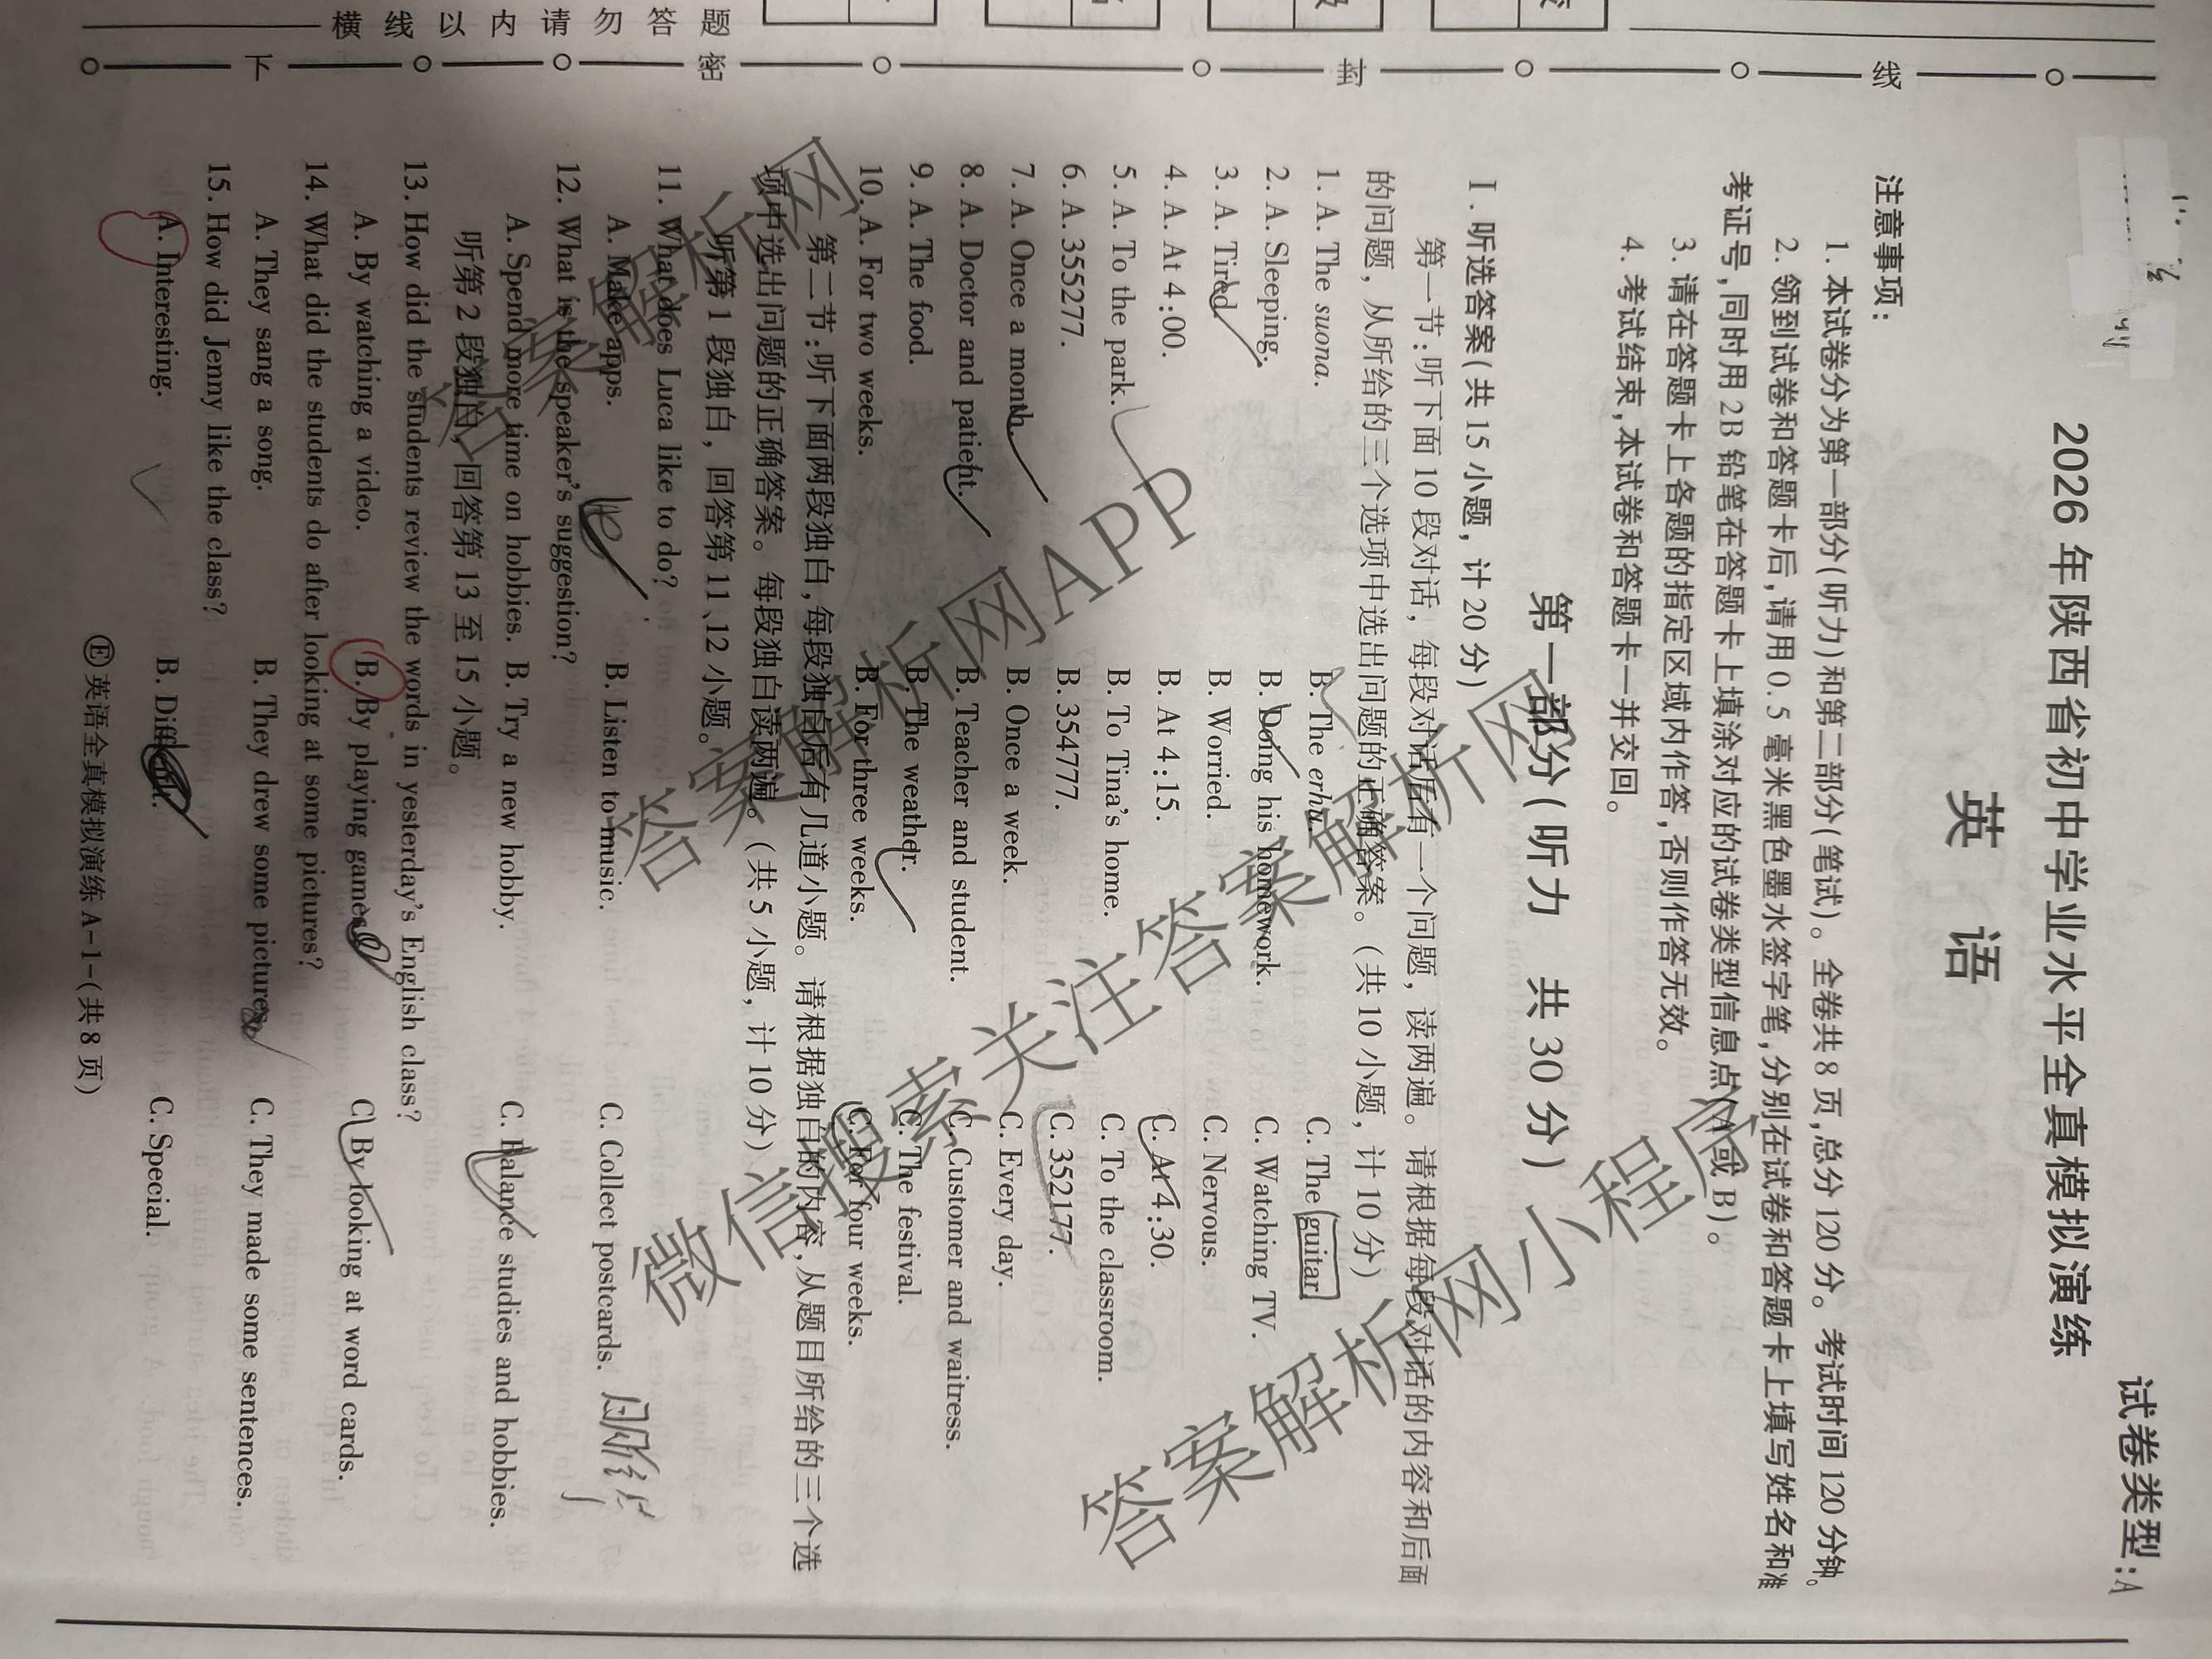 试卷类型:A
2026年陕西省初中学业水平全真模拟演练
英 语
注意事项:
1. 本试卷分为第一部分(听力)和第二部分(笔试)。全卷共8页,总分120分。考试时间120分钟。
2. 领到试卷和答题卡后,请用0.5毫米黑色墨水签字笔,分别在试卷和答题卡上填写姓名和准
考证号,同时用2B铅笔在答题卡上填涂对应的试卷类型信息点(A或B)。
3. 请在答题卡上各题的指定区域内作答,否则作答无效。
4. 考试结束,本试卷和答题卡一并交回。
第一部分(听力 共30分)
I. 听选答案(共15小题,计20分)
第一节:听下面10段对话,每段对话后有一个问题,读两遍。请根据每段对话的内容和后面
的问题,从所给的三个选项中选出问题的正确答案。(共10小题,计10分)
1. A. The suona. B. The erhu. C. The guitar.
2. A. Sleeping. B. Doing his homework. C. Watching TV.
3. A. Tired. B. Worried. C. Nervous.
4. A. At 4:00. B. At 4:15. C. At 4:30.
5. A. To the park. B. To Tina's home. C. To the classroom.
6. A. 355277. B. 354777. C. 352177.
7. A. Once a month. B. Once a week. C. Every day.
8. A. Doctor and patient. B. Teacher and student. C. Customer and waitress.
9. A. The food. B. The weather. C. The festival.
10. A. For two weeks. B. For three weeks. C. For four weeks.
第二节:听下面两段独白,每段独白后有几道小题。请根据独白的内容,从题目所给的三个选
项中选出问题的正确答案。每段独白读两遍。(共5小题,计10分)
听第1段独白,回答第11、12小题。
11. What does Luca like to do?
A. Make apps. B. Listen to music. C. Collect postcards.
12. What is the speaker's suggestion?
A. Spend more time on hobbies. B. Try a new hobby. C. Balance studies and hobbies.
听第2段独白,回答第13至15小题。
13. How did the students review the words in yesterday's English class?
A. By watching a video. B. By playing games. C. By looking at word cards.
14. What did the students do after looking at some pictures?
A. They sang a song. B. They drew some pictures. C. They made some sentences.
15. How did Jenny like the class?
A. Interesting. B. C. Special.
Ⓔ英语全真模拟演练 A-1-(共8页)
横线以内请勿答题
下 密 封 线
答案解析网
答案解析网APP
微信搜索关注答案解析网
答案解析网小程序